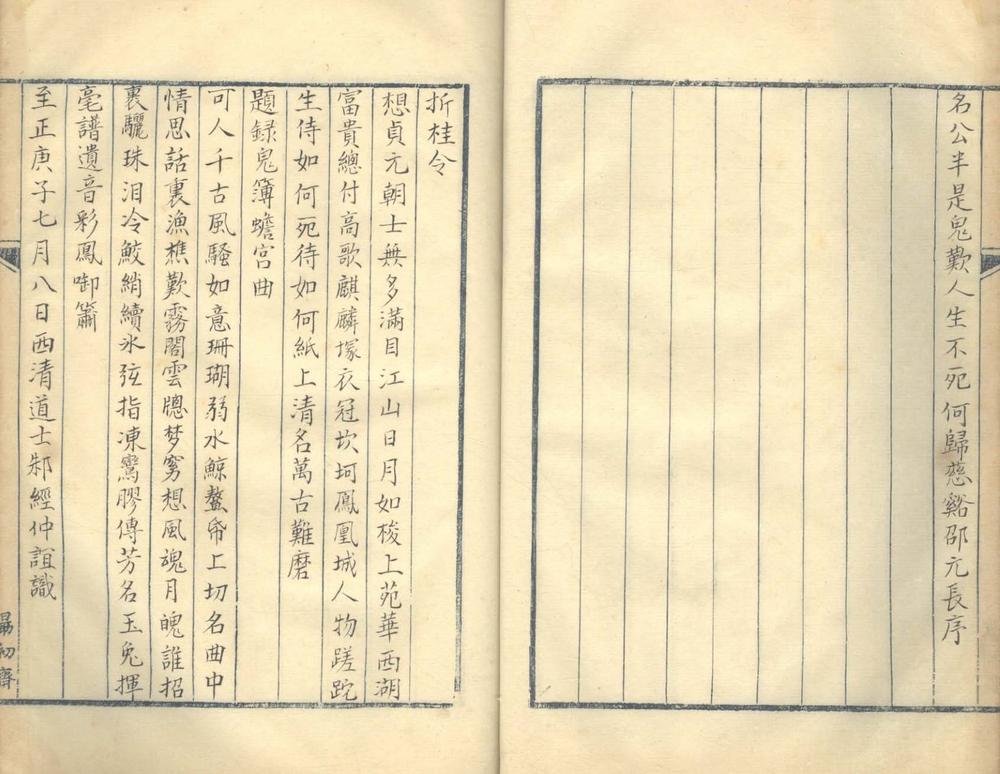 名公半是鬼歎人生不死何歸慈谿邵元長序
折桂令
想貞元朝士無多滿目江山日月如梭上苑華西湖
富貴總付高歌麒麟塚衣冠坎坷鳳凰城人物蹉跎
生待如何死待如何紙上清名萬古難磨
題録鬼簿蟾宮曲
可人千古風騷如意珊瑚弱水鯨鼇帋上切名曲中
情思話裏漁樵歎霧閣雲牕梦窈想風魂月魄誰招
裏驪珠泪冷鮫綃續氷弦指凍鸞膠傳芳名玉兔揮
毫譜遺音彩鳳啣簫
至正庚子七月八日西清道士邾經仲誼識